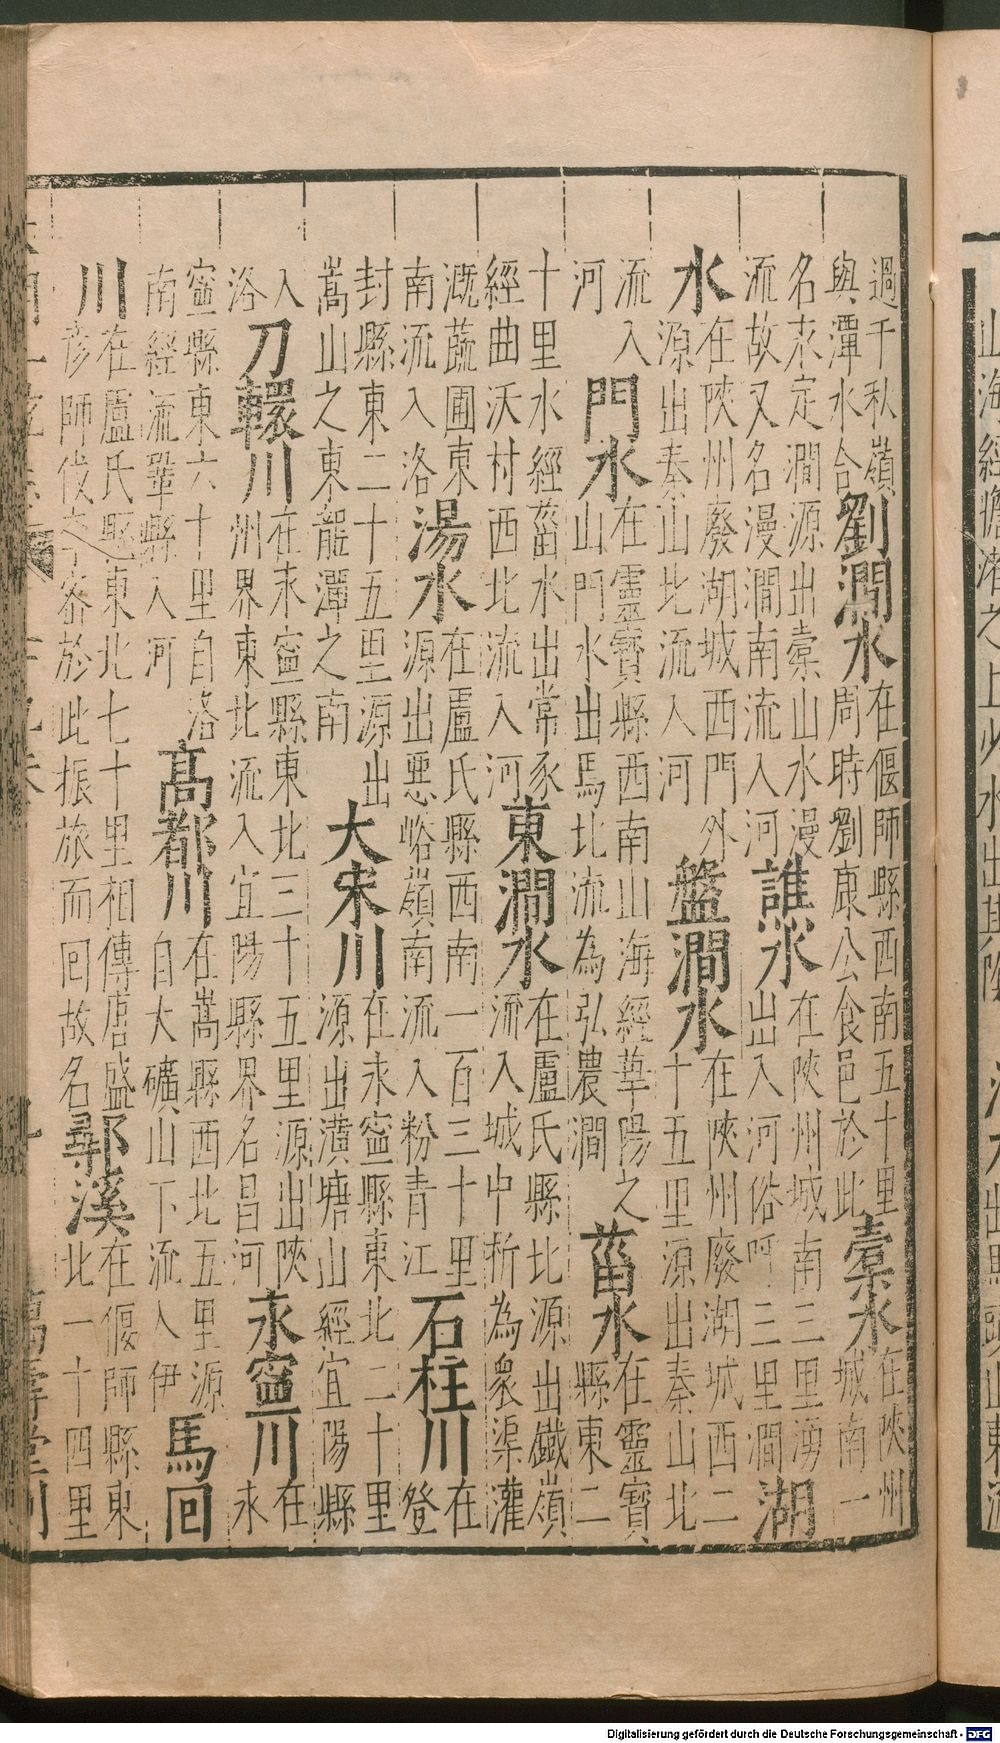 過千秋嶺與潭水合劉澗水在偃師縣西南五十里周時劉康公食邑於此橐水在陜州城南一
名永定澗源出橐山水漫流故又名漫澗南流入河譙水在陜州城南三里湧出入河俗呼三里澗湖
水在陜州廢湖城西門外源出秦山北流入河盤澗水在陜州廢湖城西二十五里源出秦山北
流入河門水在靈寶縣西南山海經華陽之山門水出焉北流為弘農澗菑水在靈寶縣東二
十里水經菑水出常烝經曲沃村西北流入河東澗水在盧氏縣北源出鐵嶺流入城中析為衆渠灌
溉蔬圃東南流入洛湯水在盧氏縣西南一百三十里源出惡峪嶺南流入粉青江石柱川在登
封縣東二十五里源出嵩山之東龍潭之南大宋川在永寧縣東北二十里源出潢塘山經宜陽縣
入洛刀轘川在永寧縣東北三十五里源出陜州界東北流入宜陽縣界名昌河永寧川在永
寧縣東六十里自洛南經流鞏縣入河高都川在嵩縣西北五里源自大礦山下流入伊馬回
川在盧氏縣東北七十里相傳唐盛彦師伐李密於此振旅而回故名鄩溪在偃師縣東北一十四里
萬壽堂刊
Digitalisierung gefördert durch die Deutsche Forschungsgemeinschaft - DFG